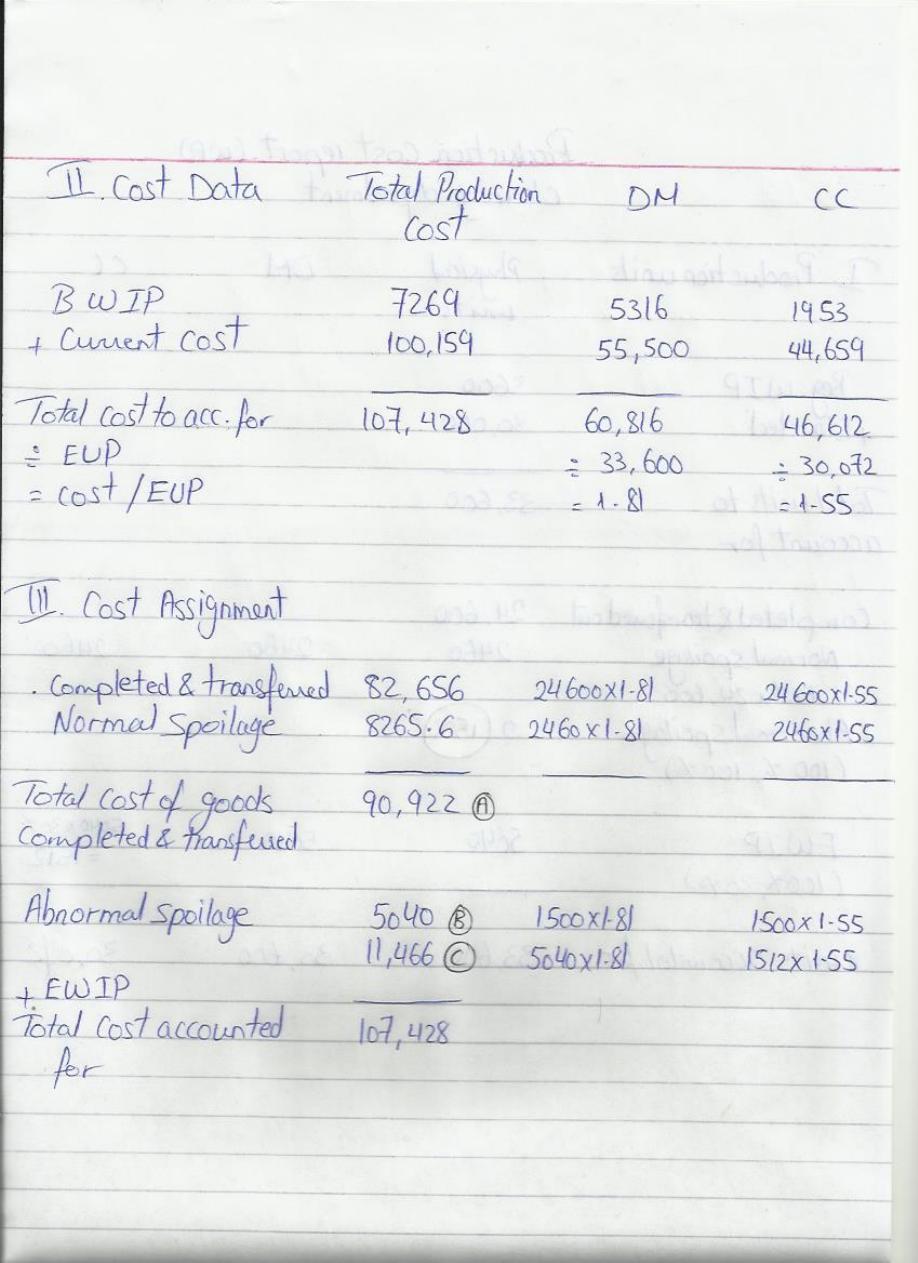 II. Cost Data Total Production DM CC
Cost
B WIP 7269 5316 1953
+ Current cost 100,159 55,500 44,659
Total cost to acc. for 107,428 60,816 46,612
÷ EUP ÷ 33,600 ÷ 30,072
= cost/EUP = 1.81 = 1.55
III. Cost Assignment
. Completed & transferred 82,656 24600x1.81 24600x1.55
Normal Spoilage 8265.6 2460x1.81 2460x1.55
Total Cost of goods 90,922 Ⓐ
Completed & transferred
Abnormal Spoilage 5040 Ⓑ 1500x1.81 1500x1.55
11,466 Ⓒ 5040x1.81 1512x1.55
+ EWIP
Total Cost accounted 107,428
for